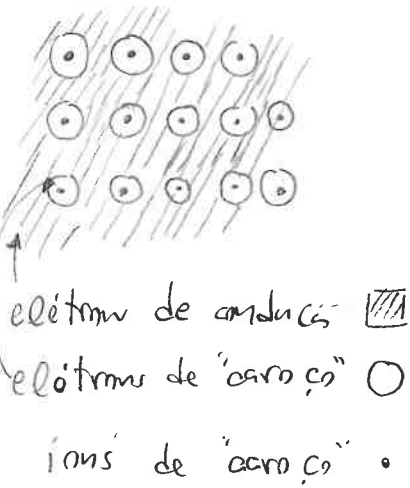 elétrons de condução
elétrons de "caroço"
íons de "caroço"